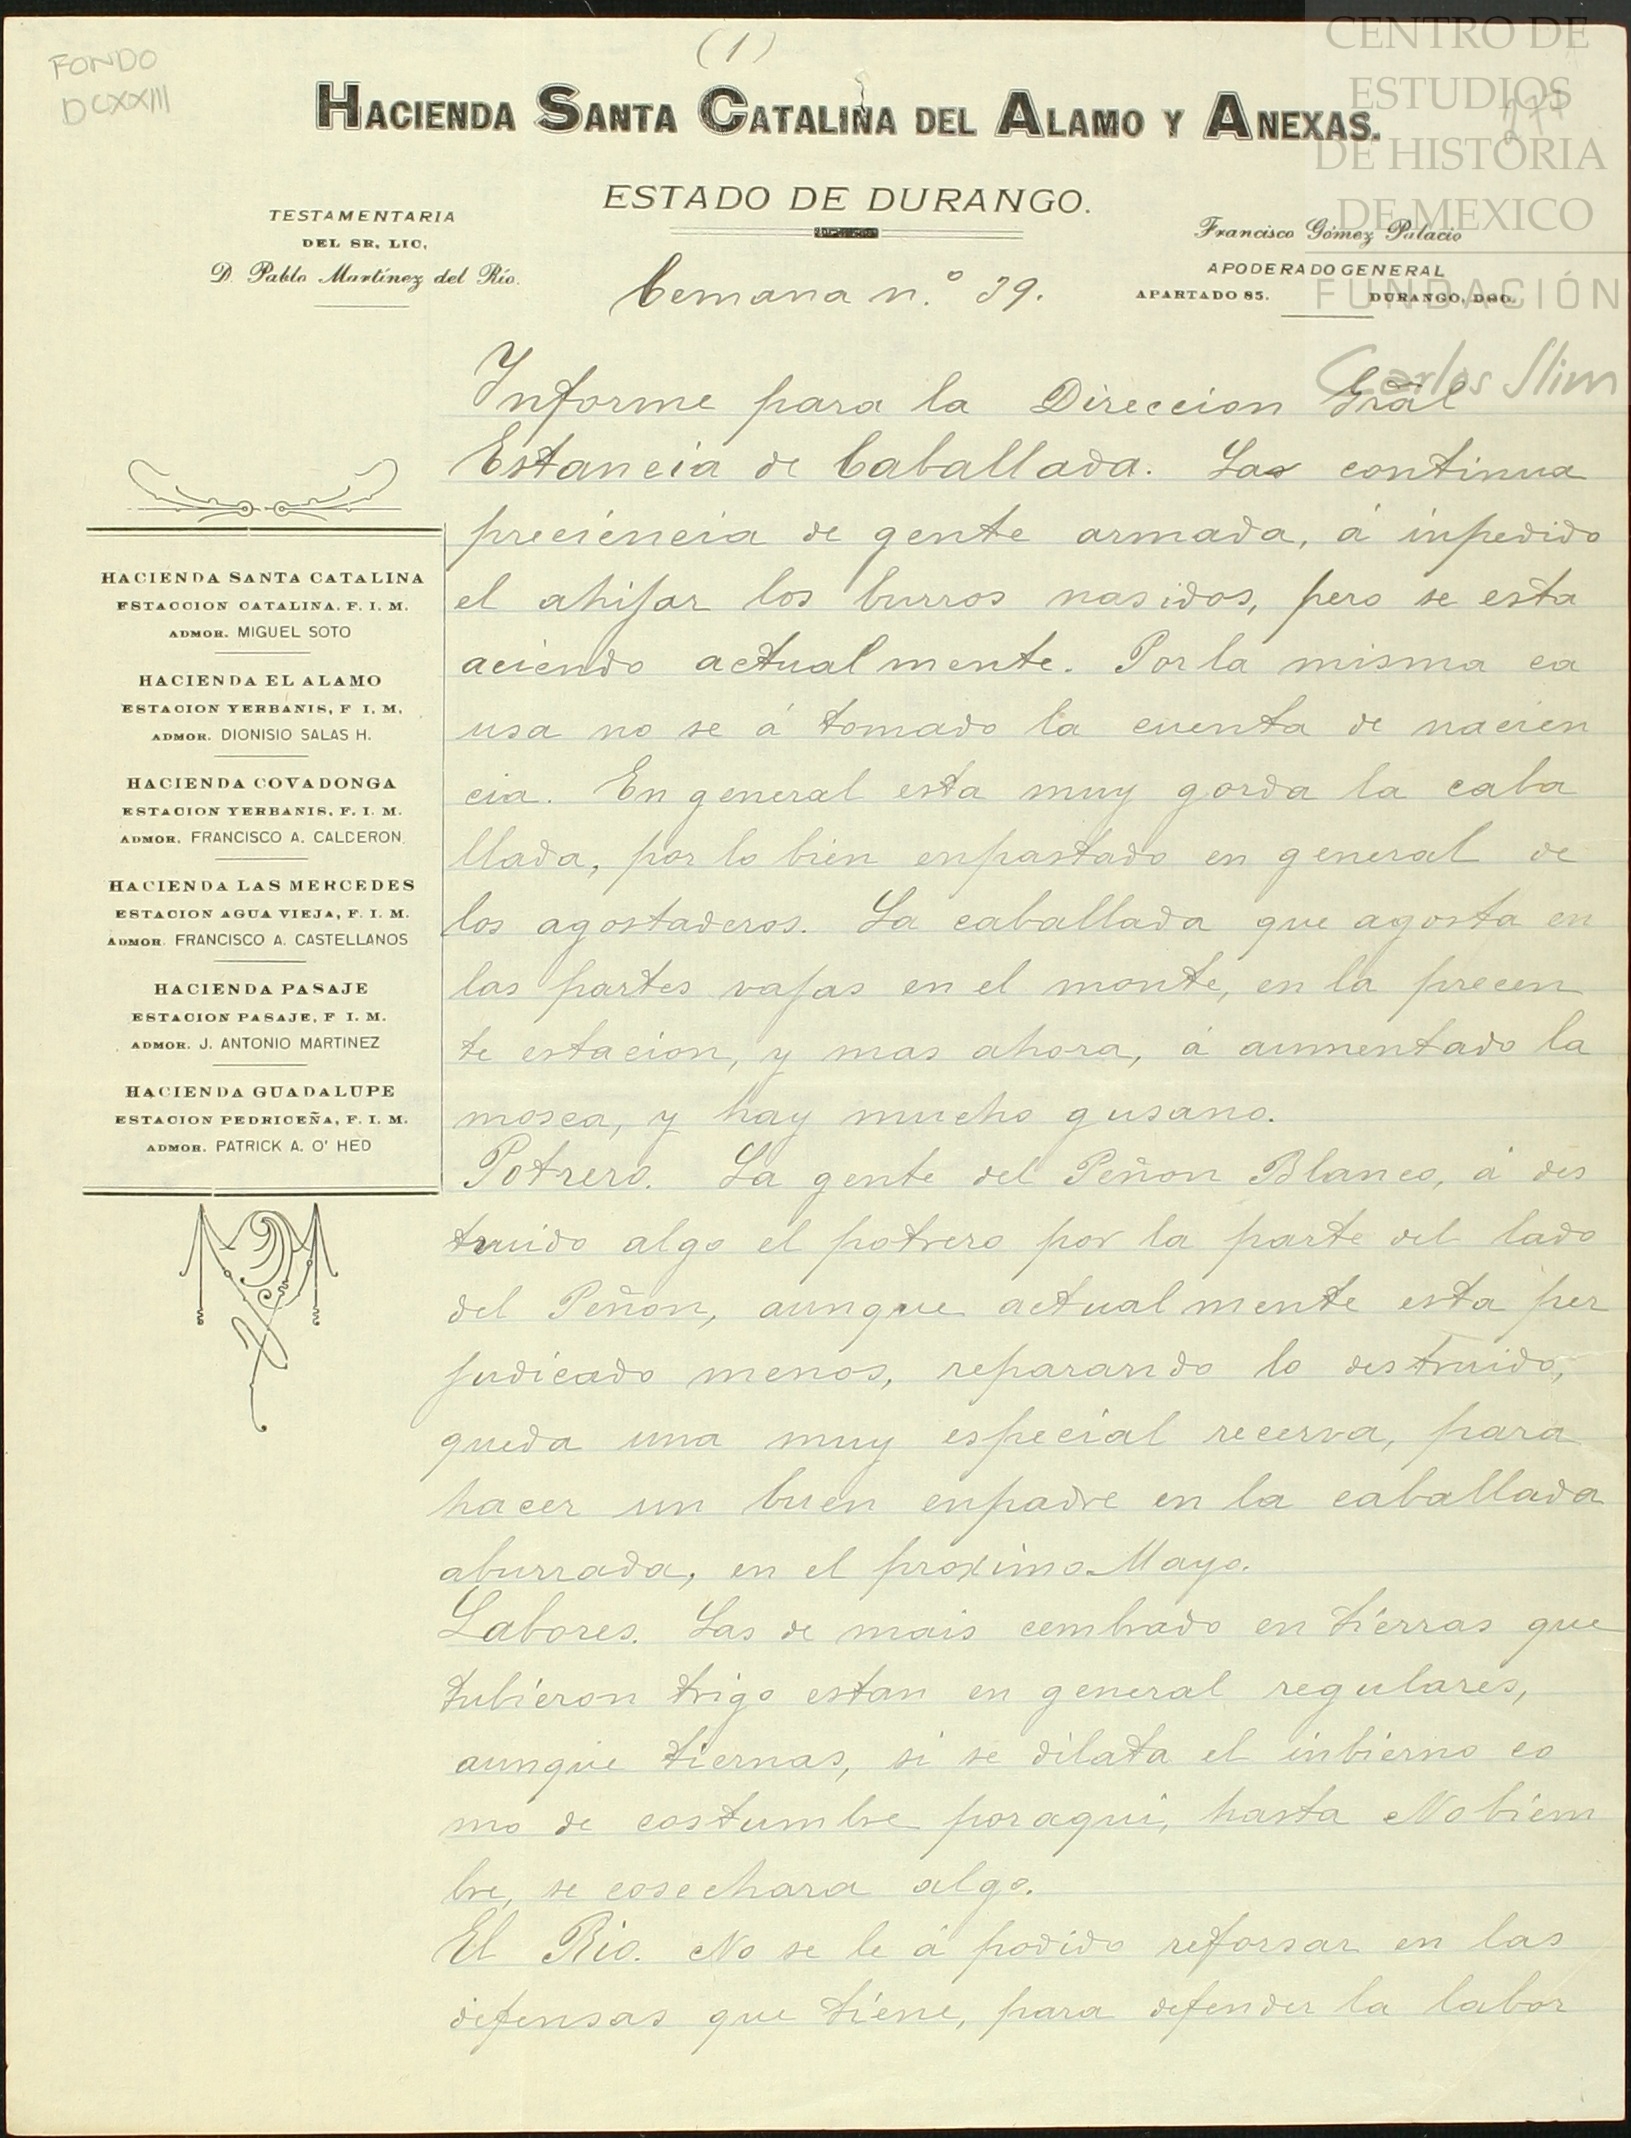 (1)
FONDO
DCXXIII
CENTRO DE
ESTUDIOS
DE HISTORIA
DE MEXICO
FUNDACIÓN
Carlos Slim
HACIENDA SANTA CATALINA DEL ALAMO Y ANEXAS.
ESTADO DE DURANGO.
TESTAMENTARIA
DEL SR, LIC,
D. Pablo Martínez del Río.
Francisco Gómez Palacio
APODERADO GENERAL
APARTADO 85. DURANGO, DGO.
Cemana n.º 39.
HACIENDA SANTA CATALINA
ESTACCION CATALINA. F. I. M.
ADMOR. MIGUEL SOTO
HACIENDA EL ALAMO
ESTACION YERBANIS, F I. M.
ADMOR. DIONISIO SALAS H.
HACIENDA COVADONGA
ESTACION YERBANIS, F. I. M.
ADMOR. FRANCISCO A. CALDERON.
HACIENDA LAS MERCEDES
ESTACION AGUA VIEJA, F. I. M.
ADMOR. FRANCISCO A. CASTELLANOS
HACIENDA PASAJE
ESTACION PASAJE, F I. M.
ADMOR. J. ANTONIO MARTINEZ
HACIENDA GUADALUPE
ESTACION PEDRICEÑA, F. I. M.
ADMOR. PATRICK A. O' HED
Informe para la Direccion Gral
Estancia de Caballada. Las continua
preciencia de gente armada, á inpedido
el ahijar los burros nasidos, pero se esta
aciendo actualmente. Por la misma ca
usa no se á tomado la cuenta de nacien
cia. En general esta muy gorda la caba
llada, por lo bien enpastado en general de
los agostaderos. La caballada que agosta en
las partes vajas en el monte, en la precen
te estacion, y mas ahora, á aumentado la
mosca, y hay mucho gusano.
Potrero. La gente del Peñon Blanco, á des
truido algo el potrero por la parte del lado
del Peñon, aunque actualmente esta per
judicado menos, reparando lo destruido,
queda una muy especial recerva, para
hacer un buen enpadre en la caballada
aburrada, en el proximo Mayo.
Labores. Las de mais cembrado en tierras que
tubieron trigo estan en general regulares,
aunque tiernas, si se dilata el inbierno co
mo de costumbre por aqui, hasta Nobiem
bre, se cosechara algo.
El Rio. No se le á podido reforsar en las
defensas que tiene, para defender la labor